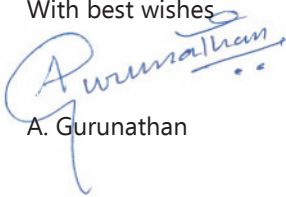 With best wishes
A Gurunathan
A. Gurunathan